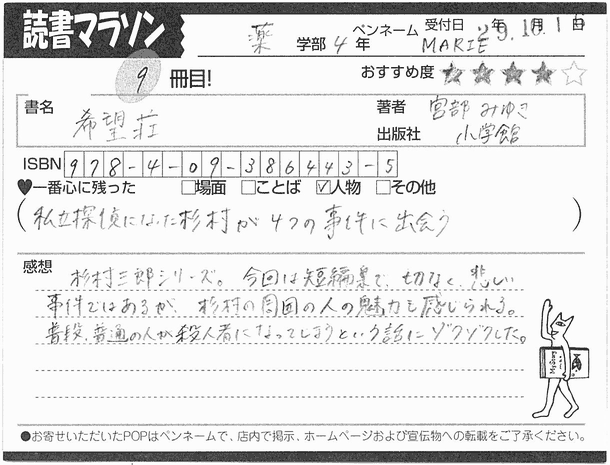 読書マラソン
薬 学部 4 年 ペンネーム MARIE 受付日 29年10月1日
9 冊目! おすすめ度 ★★★★☆
書名 希望荘
著者 宮部みゆき
出版社 小学館
ISBN 978-4-09-386443-5
♥一番心に残った □場面 □ことば ☑人物 □その他
(私立探偵になった杉村が4つの事件に出会う)
感想 杉村三郎シリーズ。今回は短編集で、切なく、悲しい
事件ではあるが、杉村の周囲の人の魅力も感じられる。
普段、普通の人が殺人者になってしまうという話にゾクゾクした。
●お寄せいただいたPOPはペンネームで、店内で掲示、ホームページおよび宣伝物への転載をご了承ください。